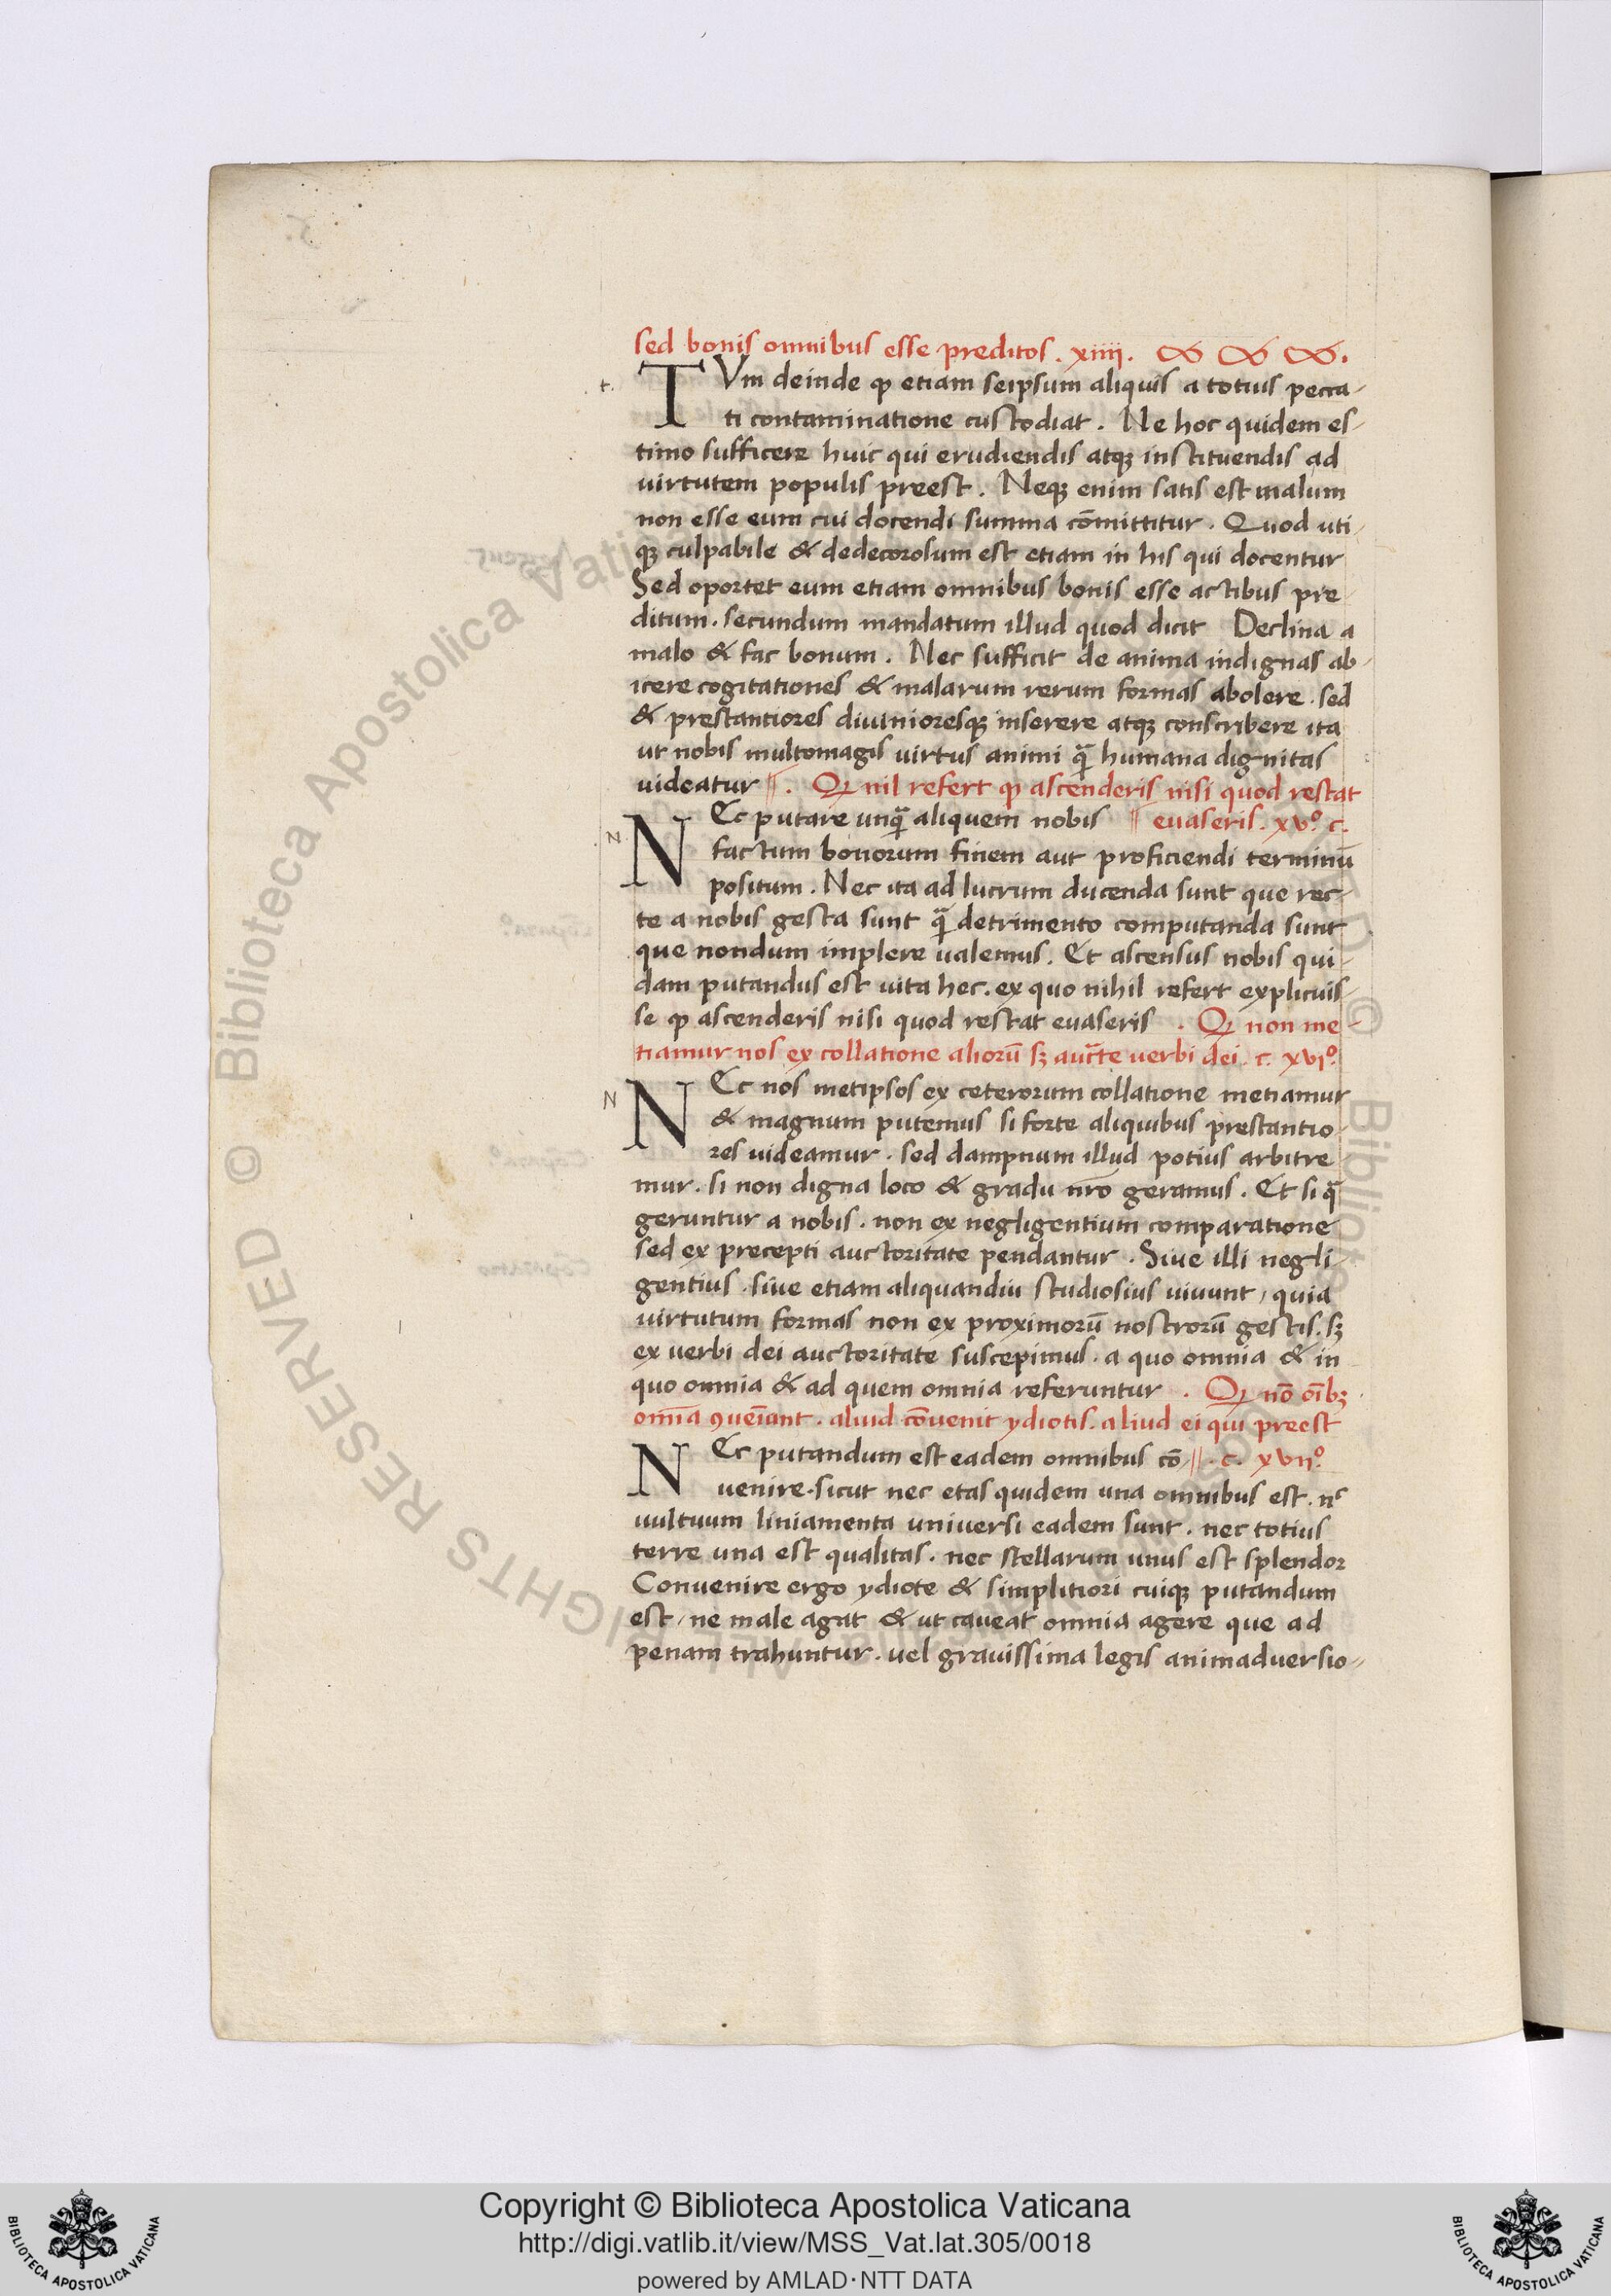 sed bonis omnibus esse preditos . xiiii .
t. TVm deinde ꝙ etiam seipsum aliquis a totius pecca-
ti contaminatione custodiat . Ne hoc quidem es-
timo sufficere huic qui erudiendis atqꝫ instituendis ad
virtutem populis preest . Neqꝫ enim satis est malum
non esse eum cui docendi summa cōmittitur . Quod uti-
qꝫ culpabile & dedecorosum est etiam in his qui docentur
Sed oportet eum etiam omnibus bonis esse actibus pre-
ditum . secundum mandatum illud quod dicit Declina a
malo & fac bonum . Nec sufficit de anima indignas ab-
icere cogitationes & malarum rerum formas abolere . sed
& prestantiores diuinioresqꝫ inserere atqꝫ conscribere ita
ut nobis multomagis virtus animi q̃ humana dignitas
uideatur . Qꝫ nil refert ꝙ ascenderis nisi quod restat
N NEc putare unq̃ aliquem nobis euaseris . xvº. c.
factum bonorum finem aut proficiendi terminū
positum . Nec ita ad lucrum ducenda sunt que rec-
te a nobis gesta sunt q̃ detrimento computanda sunt
que nondum implere ualemus . Et ascensus nobis qui-
dam putandus est uita hec . ex quo nihil refert explicuis-
se ꝙ ascenderis nisi quod restat euaseris . Qꝫ non me-
tiamur nos ex collatione aliorū sꝫ auctte verbi dei . c. xviº.
N NEc nos metipsos ex ceterorum collatione metiamur
& magnum putemus si forte aliquibus prestantio-
res uideamur . sed dampnum illud potius arbitre
mur . si non digna loco & gradu nr̄o geramus . Et si q̃
geruntur a nobis . non ex negligentium comparatione
sed ex precepti auctoritate pendantur . Siue illi negli-
gentius . siue etiam aliquandiu studiosius uiuunt , quia
virtutum formas non ex proximorū nostrorū gestis . sꝫ
ex uerbi dei auctoritate suscepimus . a quo omnia & in
quo omnia & ad quem omnia referuntur . Qꝫ nō oībꝫ
omīa ꝯueīant . aliud cōuenit ydiotis . aliud ei qui preest
NEc putandum est eadem omnibus cō . c. xviiº.
uenire . sicut nec etas quidem una omnibus est . nᶜ
uultuum liniamenta universi eadem sunt . nec totius
terre una est qualitas . nec stellarum unus est splendor
Conuenire ergo ydiote & simplitiori cuiqꝫ putandum
est , ne male agat & ut caveat omnia agere que ad
penam trahuntur . vel grauissima legis animaduersio-
Copyright © Biblioteca Apostolica Vaticana
http://digi.vatlib.it/view/MSS_Vat.lat.305/0018
powered by AMLAD · NTT DATA
BIBLIOTECA APOSTOLICA VATICANA
BIBLIOTECA APOSTOLICA VATICANA